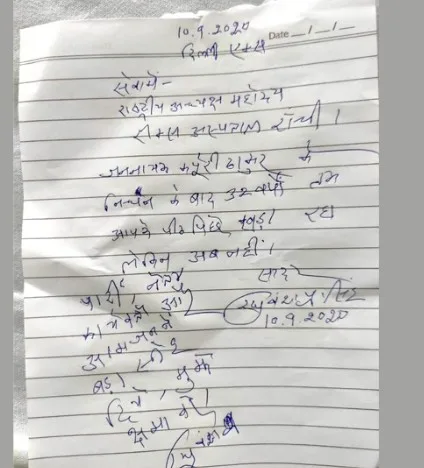 10.9.2020
Date __/__/__
दिल्ली एम्स
सेवामें-
राष्ट्रीय अध्यक्ष महोदय
रिम्स अस्पताल राँची।
जननायक कर्पूरी ठाकुर के
निधन के बाद 32 वर्षों तक
आपके पीठ पीछे खड़ा रहा
लेकिन अब नहीं।
सादर
रघुवंश प्रसाद सिंह
10.9.2020
पार्टी, नेता
कार्यकर्ता और
आमजन ने
बड़ा स्नेह
दिया, मुझे
क्षमा करें।